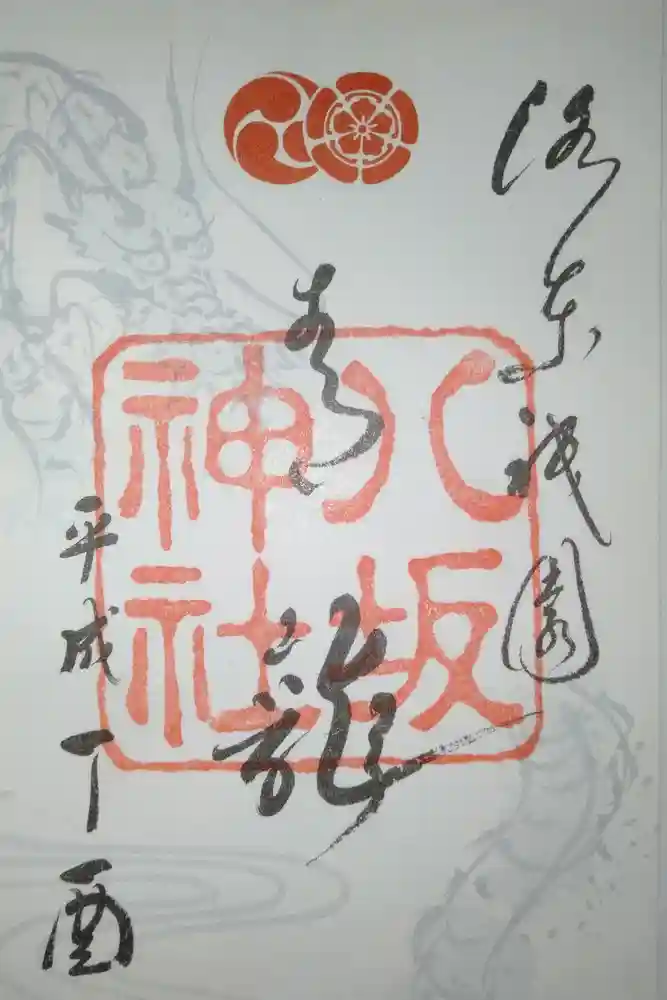 洛東祇園
青龍
八坂
神社
平成丁酉